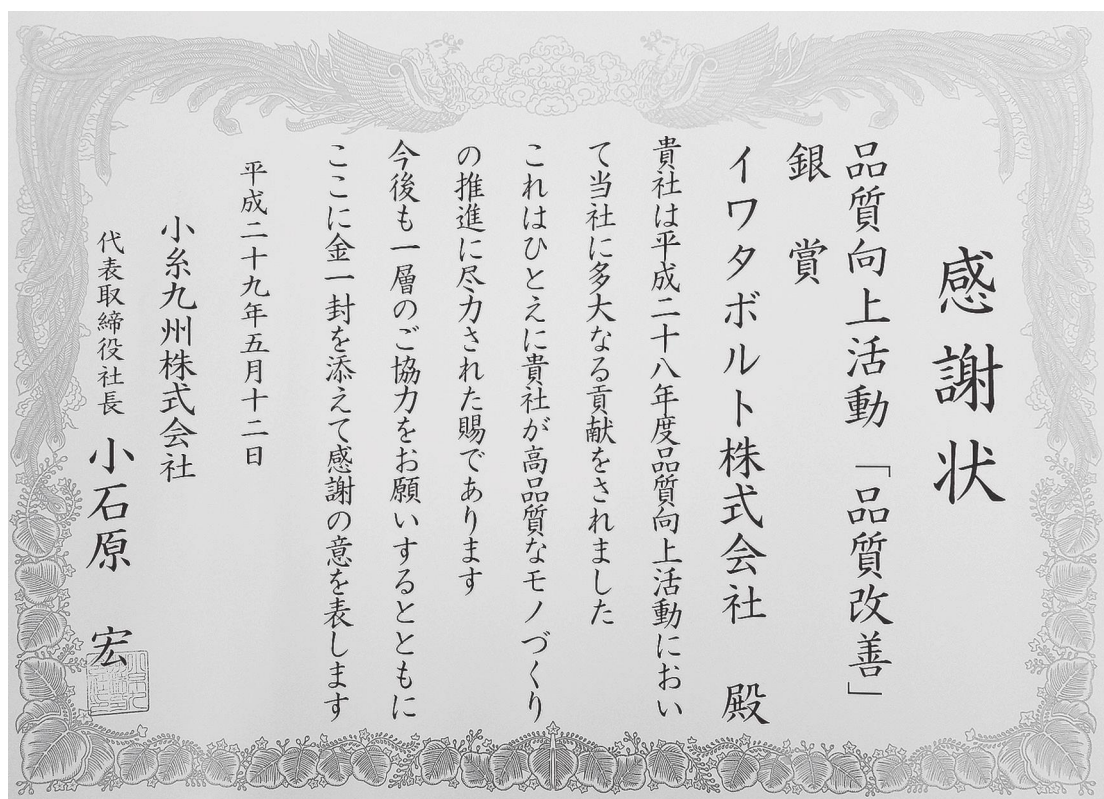 感謝状
品質向上活動 「品質改善」
銀賞
イワタボルト株式会社 殿
貴社は平成二十八年度品質向上活動におい
て当社に多大なる貢献をされました
これはひとえに貴社が高品質なモノづくり
の推進に尽力された賜であります
今後も一層のご協力をお願いするとともに
ここに金一封を添えて感謝の意を表します
平成二十九年五月十二日
小糸九州株式会社
代表取締役社長 小石原 宏